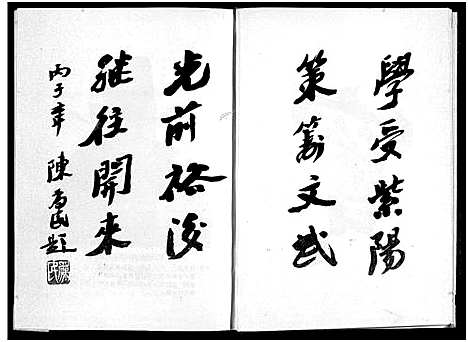 學受紫陽
策籌文武
光前裕後
继往開來
丙子年 陳 題